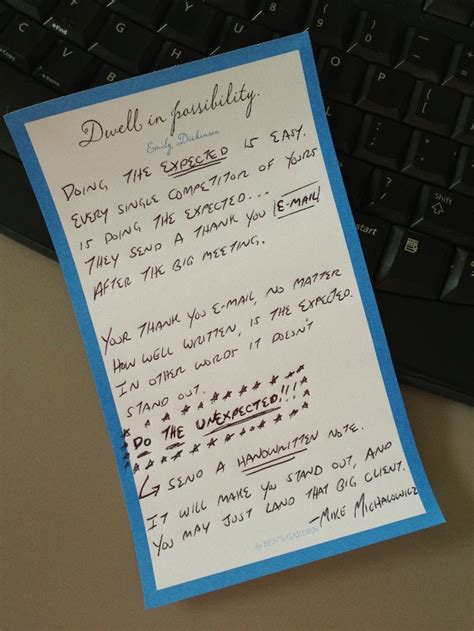 Dwell in possibility.
Emily Dickinson
DOING THE EXPECTED IS EASY.
EVERY SINGLE COMPETITOR OF YOURS
IS DOING THE EXPECTED...
THEY SEND A THANK YOU E-MAIL
AFTER THE BIG MEETING.
YOUR THANK YOU E-MAIL, NO MATTER
HOW WELL WRITTEN, IS THE EXPECTED.
IN OTHER WORDS IT DOESN'T
STAND OUT.
DO THE UNEXPECTED!!!
SEND A HANDWRITTEN NOTE.
IT WILL MAKE YOU STAND OUT, AND
YOU MAY JUST LAND THAT BIG CLIENT.
-MIKE MICHALOWICZ
by BEN'S GARDEN